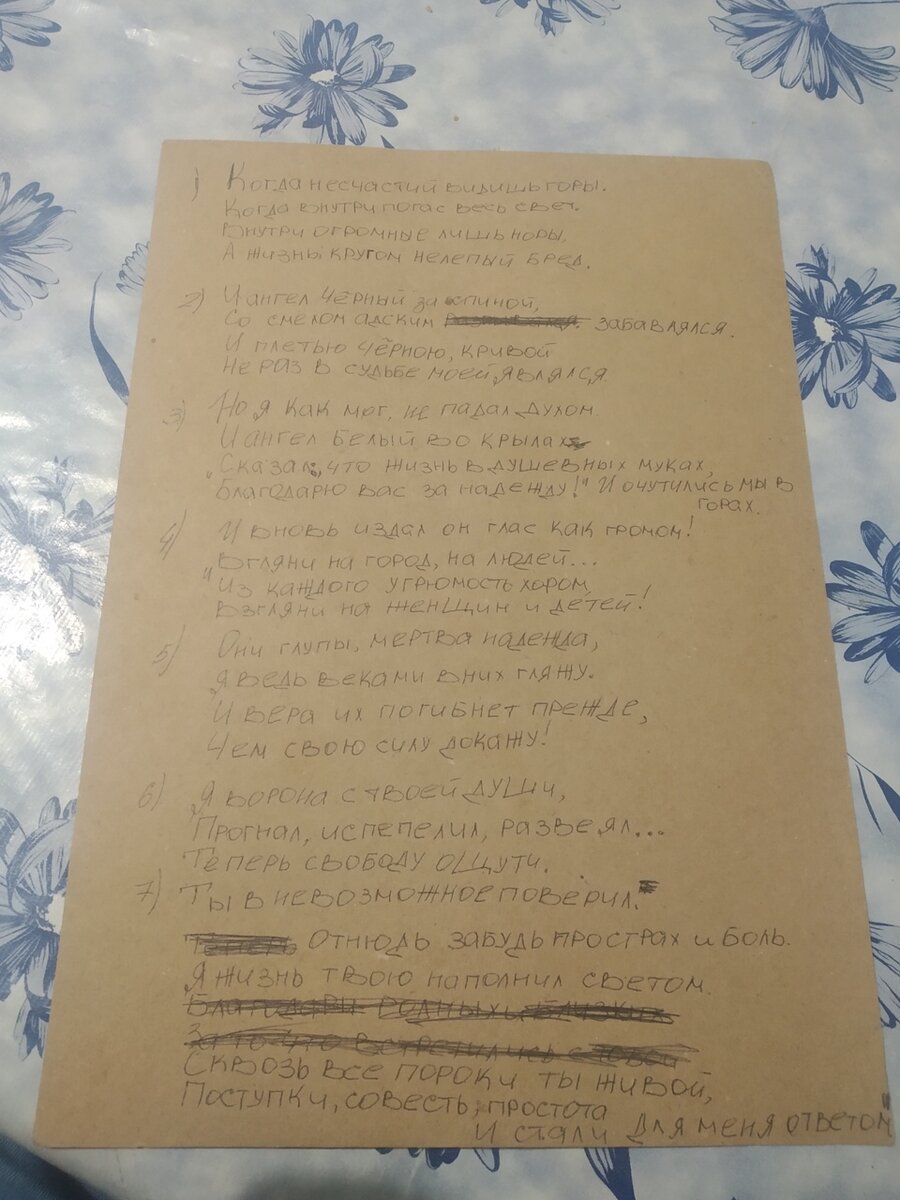 1) Когда несчастий видишь горы.
Когда внутри погас весь свет.
Внутри огромные лишь норы,
А жизнь кругом нелепый бред.
2) И ангел чёрный за спиной,
Со смехом адским забавлялся.
И плетью чёрною, кривой
Не раз в судьбе моей, являлся
3) Но я как мог, не падал духом.
И ангел белый во крылах
"Сказал, что жизнь в душевных муках,
Благодарю вас за надежду!" И очутились мы в
горах.
4) И вновь издал он глас как громом!
"Взгляни на город, на людей...
Из каждого угрюмость хором,
Взгляни на женщин и детей!
5) Они глупы, мертва надежда,
Я ведь веками в них гляжу.
И вера их погибнет прежде,
Чем свою силу докажу!
6) Я ворона с твоей души,
Прогнал, испепелил, развеял...
Теперь свободу ощути.
7) Ты в невозможное поверил.
Отнюдь забудь про страх и боль.
Я жизнь твою наполнил светом.
Благодари родных и близких
За то что встретились с тобой
Сквозь все пороки ты живой,
Поступки, совесть, простота
И стали для меня ответом"